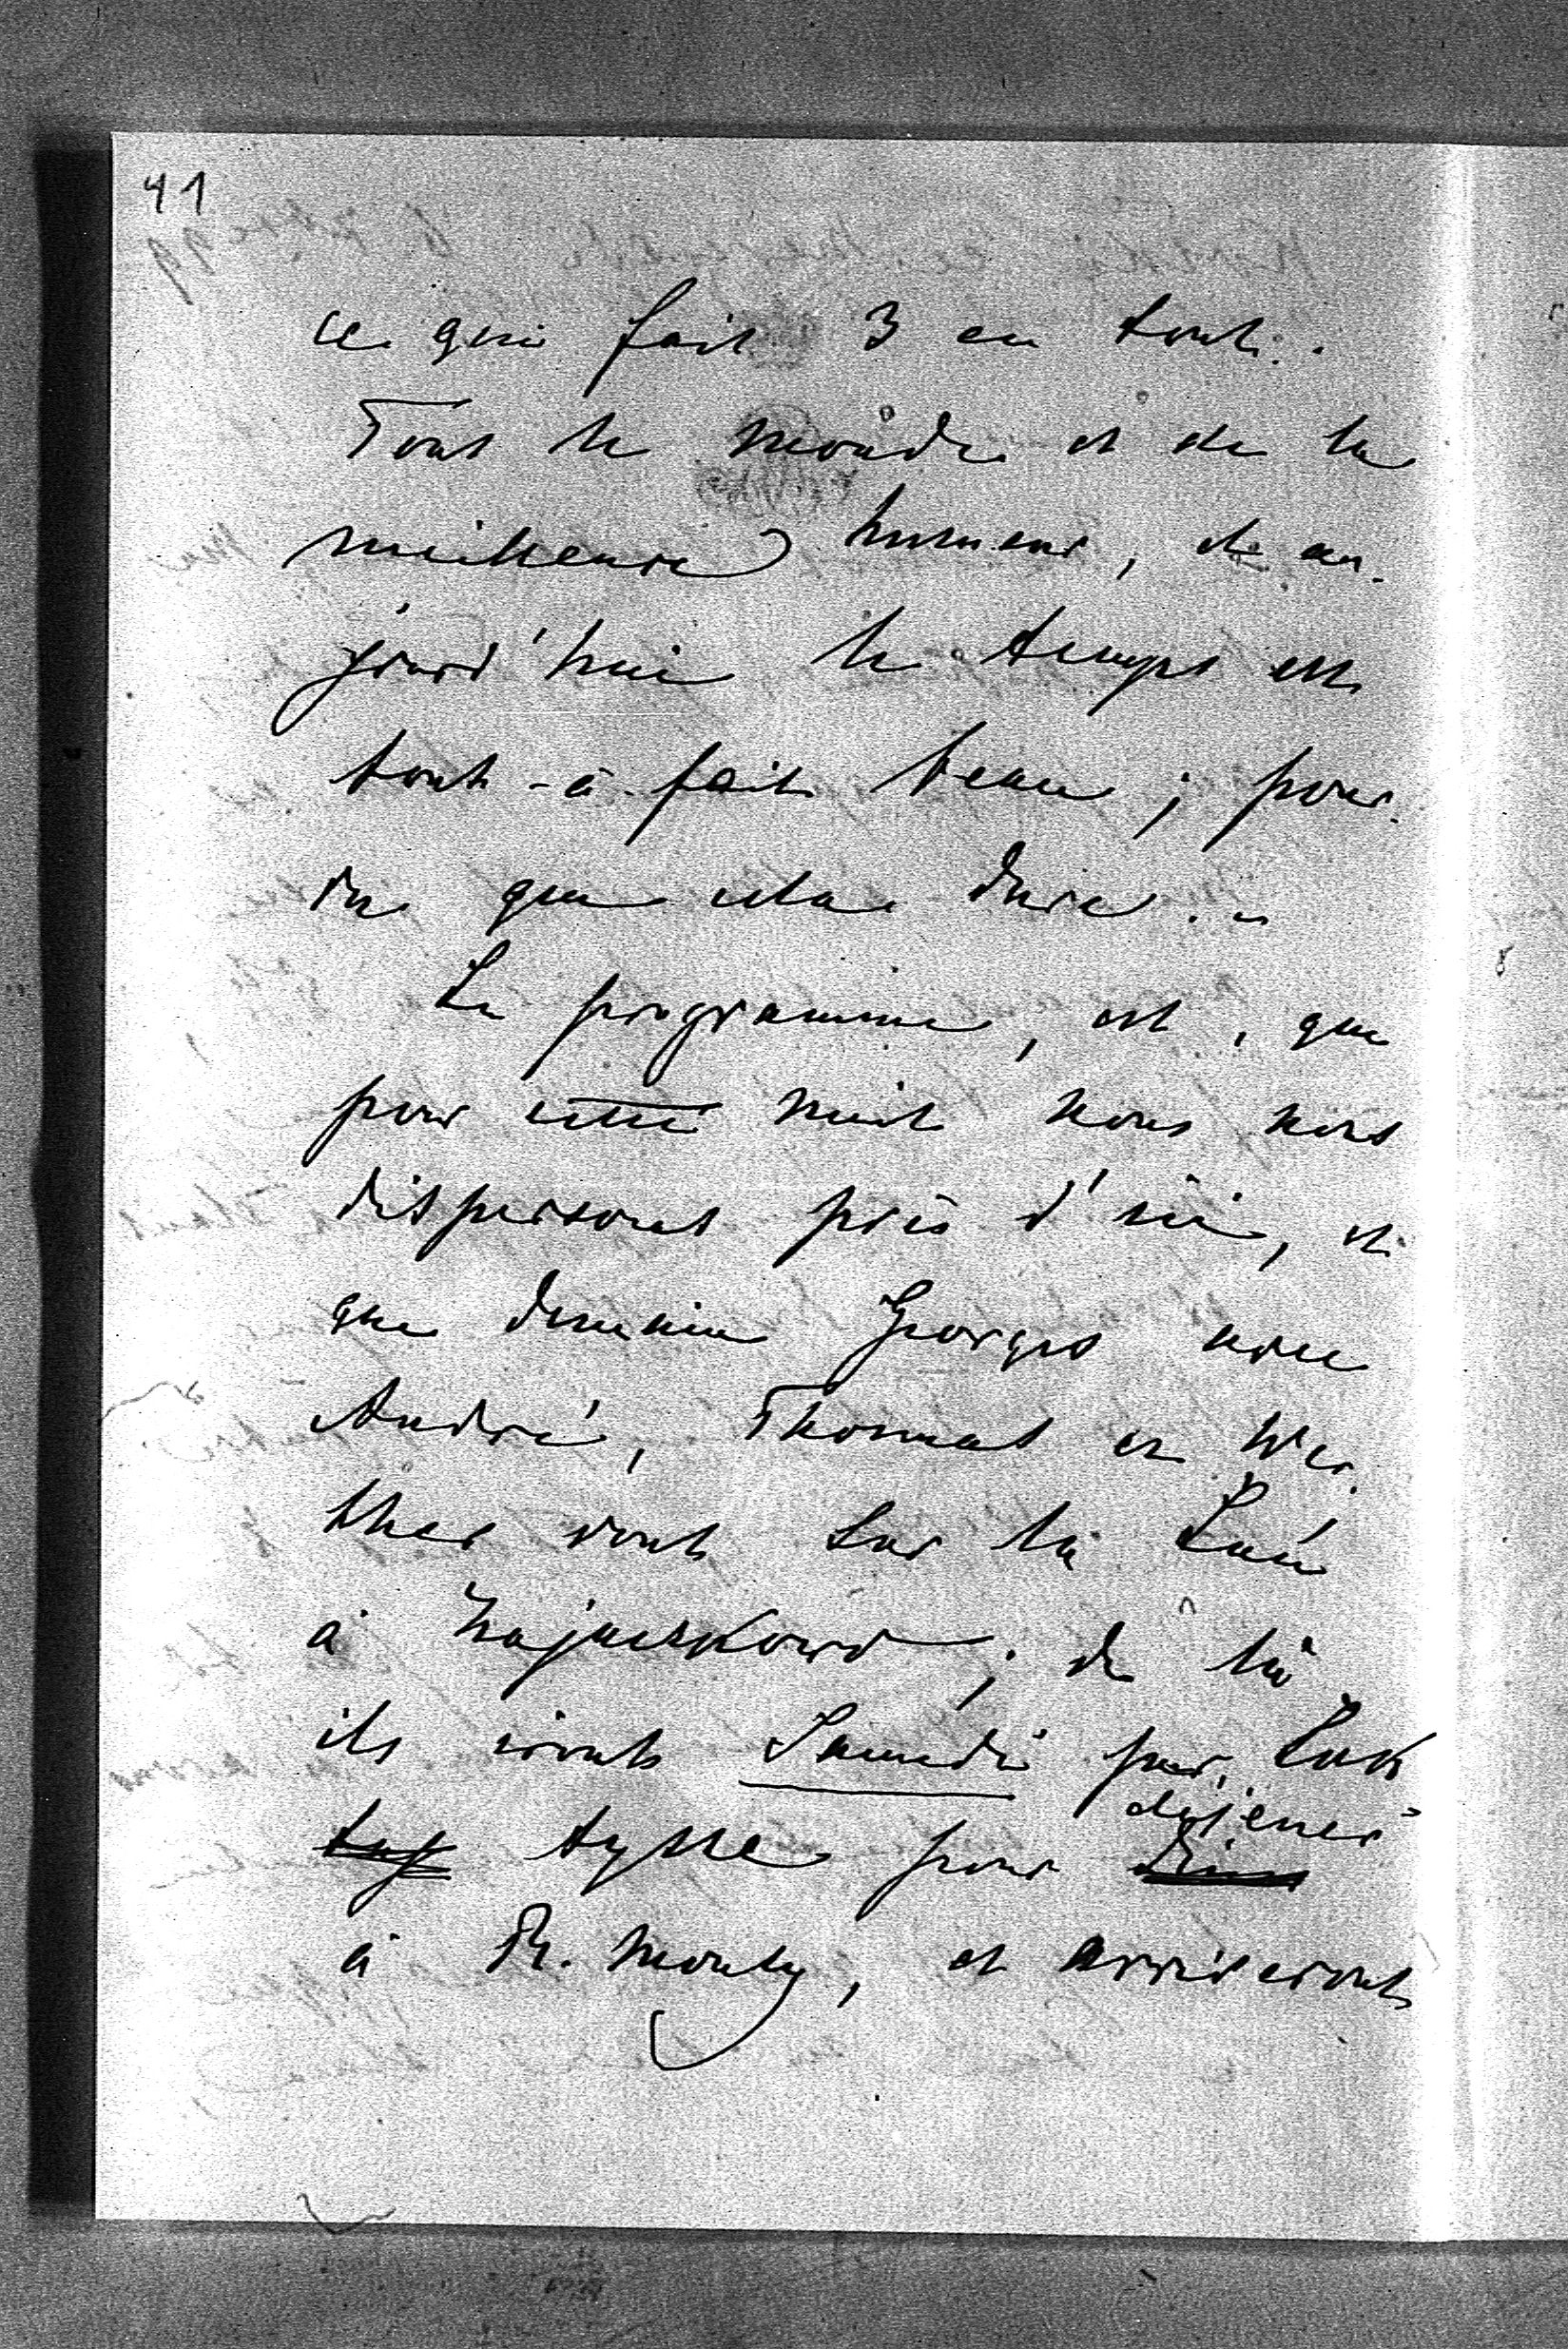 41
ce qui fait 3 en tout.
Tout le monde et de la
meilleure humeur, et au-
jourd'hui le temps est
tout-à-fait beau; pour-
vu que cela dure. -
Le programme, est, que
pour cette nuit nous nous
dispersons près d'ici, et
que demain Georges avec
André, Thomas et Wer-
ther vont sur la
à ; de là
ils iront Samedi par
tysze pour déjener
à R. Monty, et arriveront